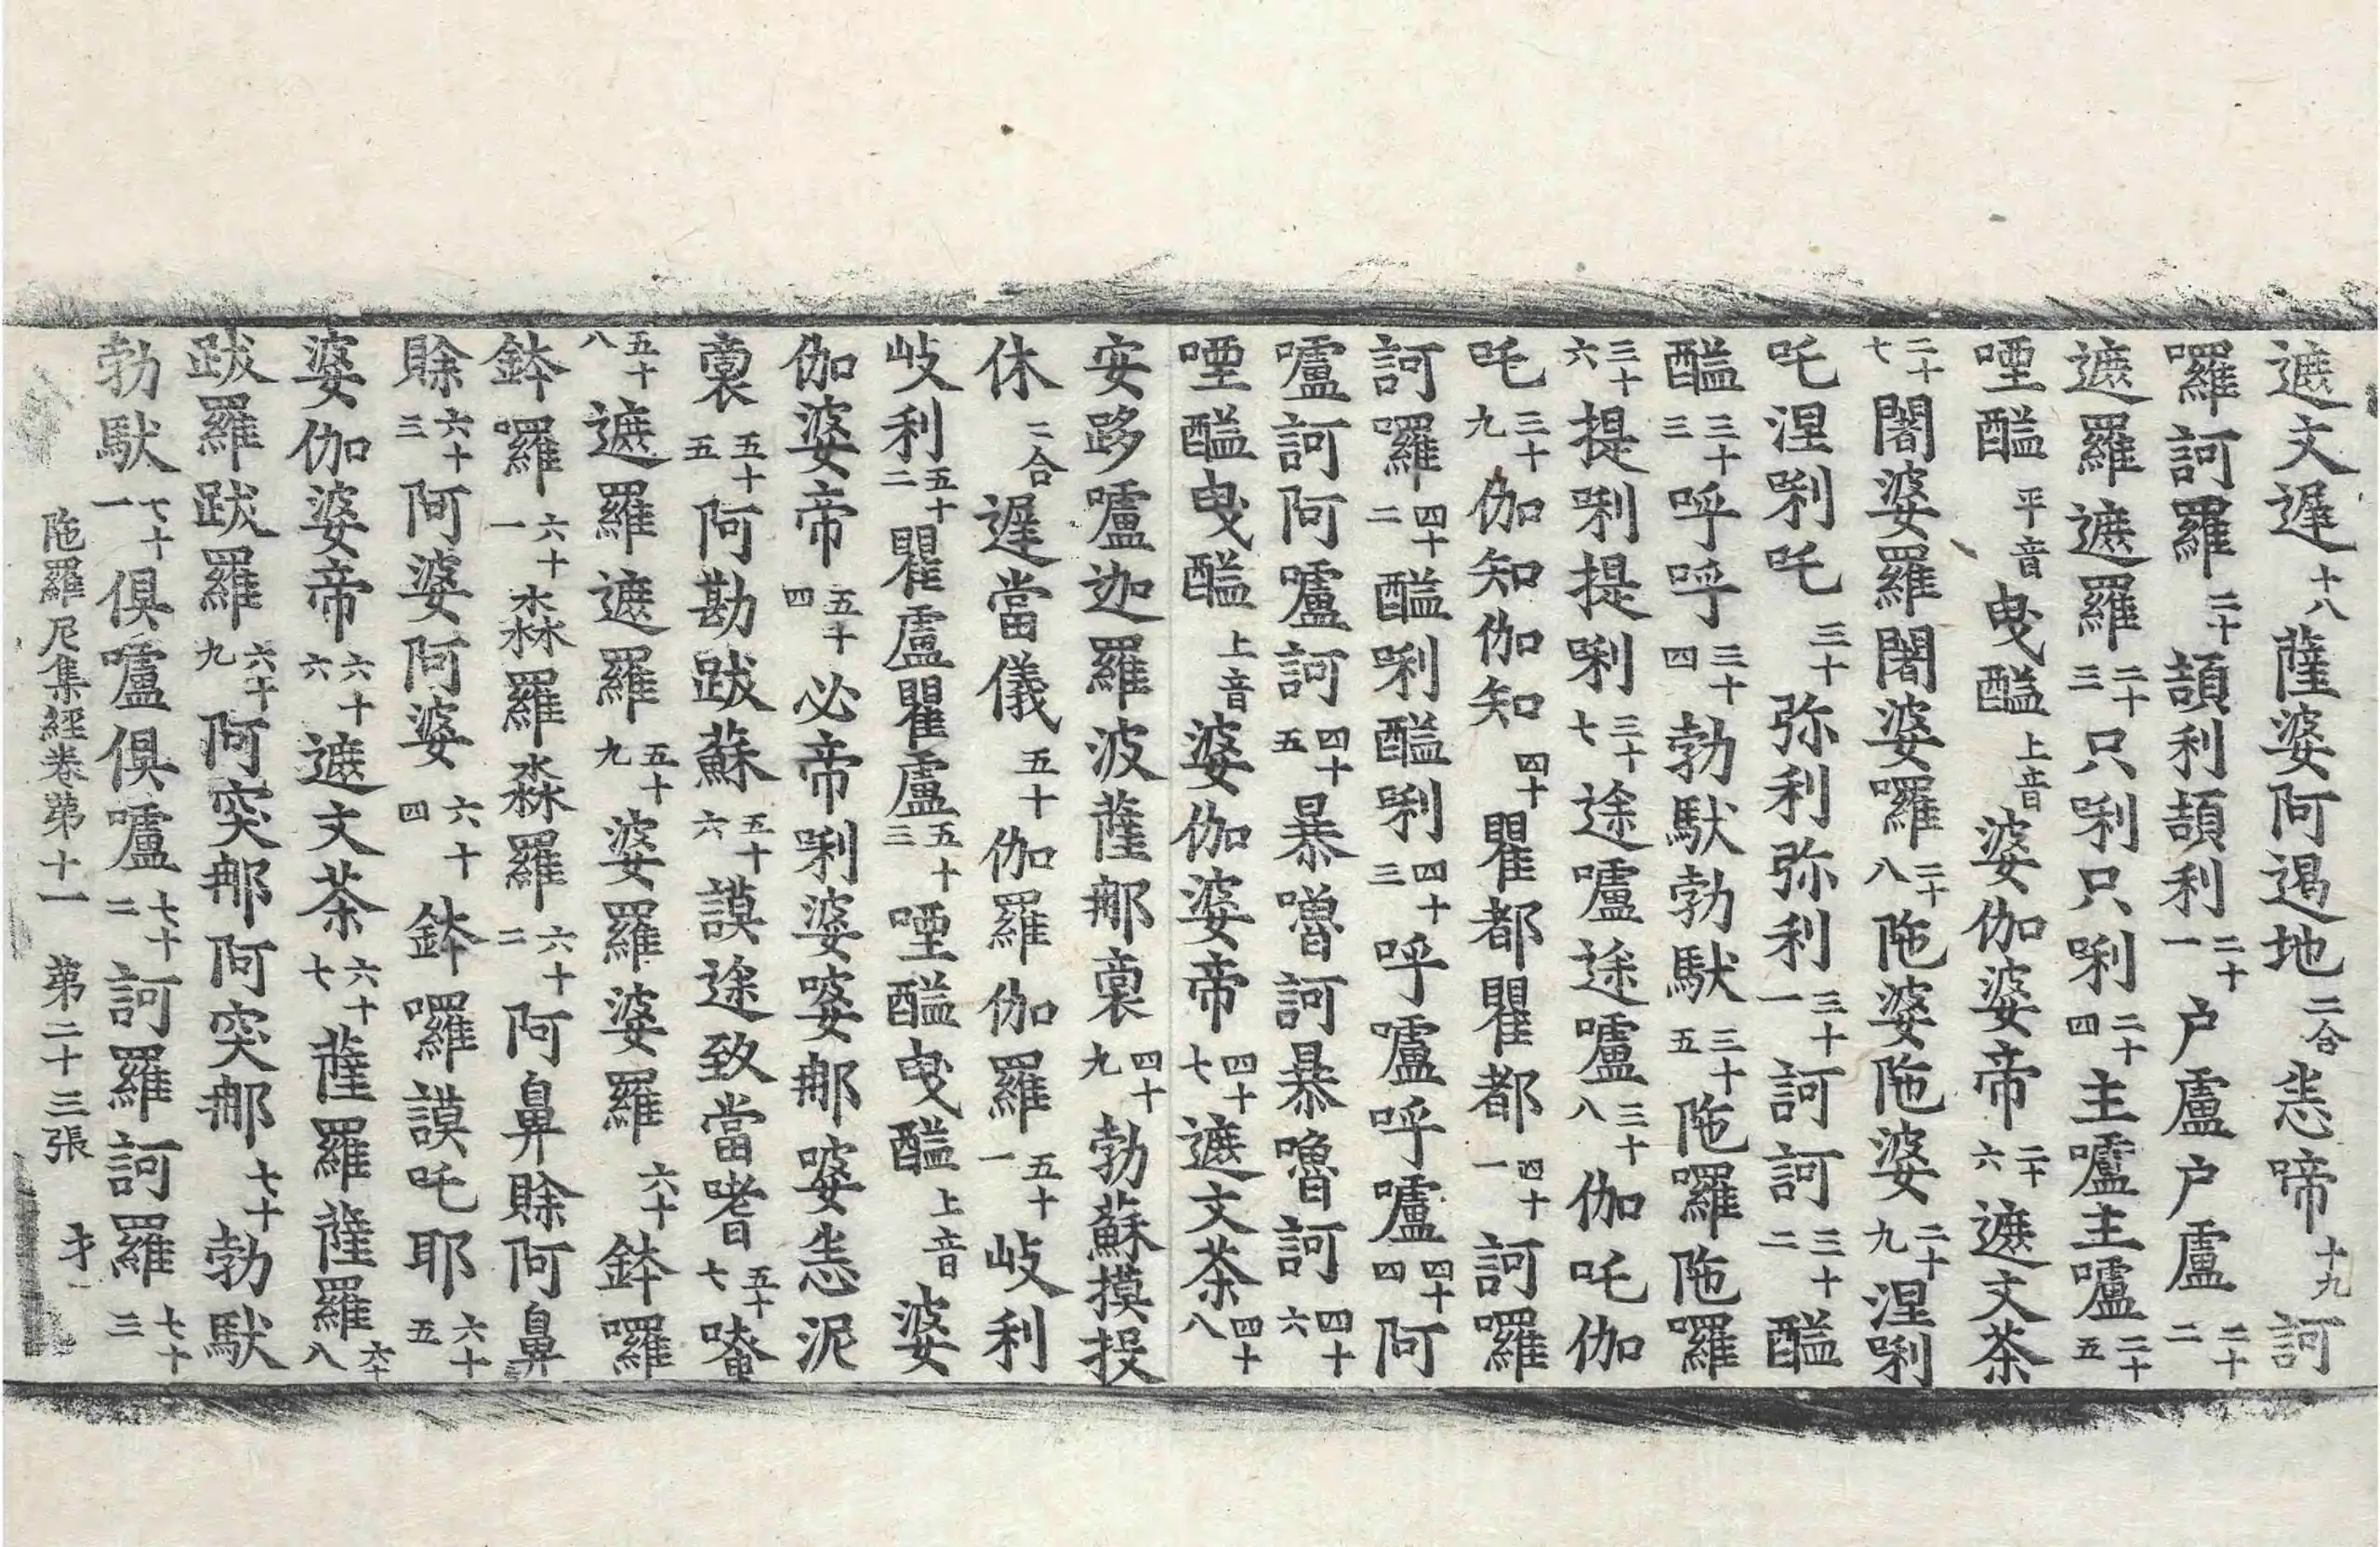 遮文遲十八薩婆阿遏地二合恙啼十九訶
囉訶羅二十頡利頡利二十一户盧户盧二十二
遮羅遮羅二十三只唎只唎二十四主嚧主嚧二十五
堙醯平音曳醯上音婆伽婆帝二十六遮文茶
二十七闍婆羅闍婆囉二十八陁婆陁婆二十九涅唎
吒涅唎吒三十弥利弥利三十一訶訶三十二醯
醯三十三呼呼三十四勃䭾勃䭾三十五陁囉陁囉
三十六提唎提唎三十七途嚧途嚧三十八伽吒伽
吒三十九伽知伽知四十瞿都瞿都四十一訶囉
訶囉四十二醯唎醯唎四十三呼嚧呼嚧四十四阿
嚧訶阿嚧訶四十五暴嚕訶暴嚕訶四十六
堙醯曳醯上音婆伽婆帝四十七遮文茶四十八
安跢嚧迦羅波薩那裏四十九勃蘇摸投
休二合遲當儀五十伽羅伽羅五十一岐利
岐利五十二瞿盧瞿盧五十三堙醯曳醯上音婆
伽婆帝五十四必帝唎婆婆那婆恙泥
裏五十五阿勘跋蘇五十六謨途致當嗜五十七喳
五十八遮羅遮羅五十九婆羅婆羅六十鉢囉
鉢囉六十一淼羅淼羅六十二阿鼻賒阿鼻
賒六十三阿婆阿婆六十四鉢囉謨吒耶六十五
婆伽婆帝六十六遮文茶六十七薩羅薩羅六十八
跋羅跋羅六十九阿突那阿突那七十勃䭾
勃䭾七十一俱嚧俱嚧七十二訶羅訶羅七十三
陁羅尼集經卷第十一 第二十三張 才一